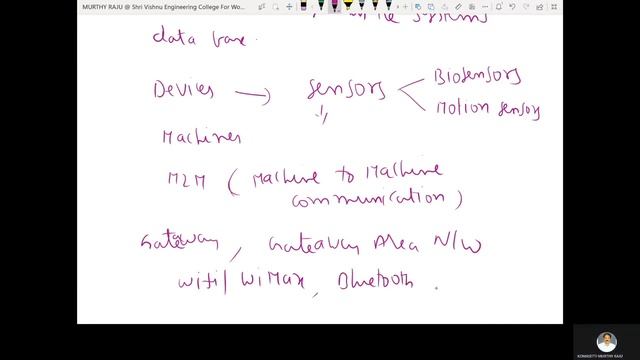 MURTHY RAJU @ Shri Vishnu Engineering College For Wo...
systems
data base.
Devices → sensors
Biosensors
Motion sensors
Machines
M2M ( Machine to Machine
communication )
Gateway, Gateaway Area N/W
Wifi / WiMax, Bluetooth .
KONASETTI MURTHY RAJU